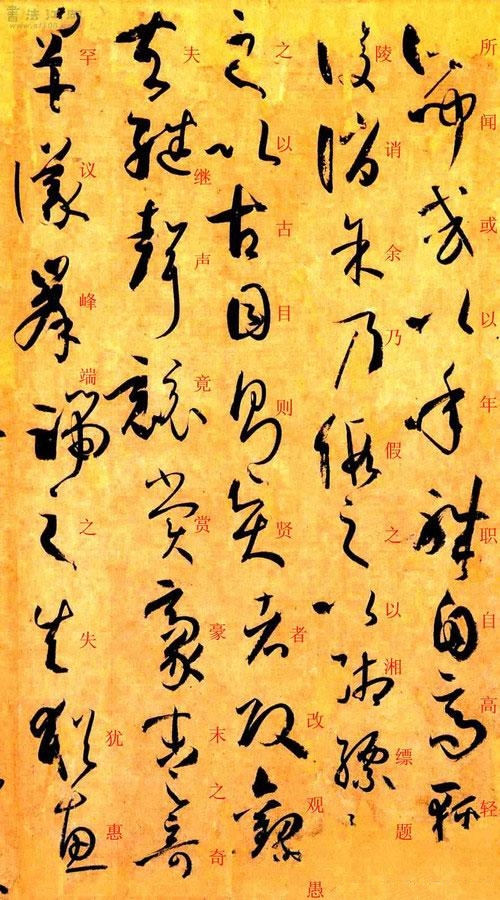 書法江湖
所闻或以年职自高轻
陵诮余乃假之以湘缥题
之以古目则贤者改观愚
夫继声竟赏豪末之奇
罕议峰端之失犹惠